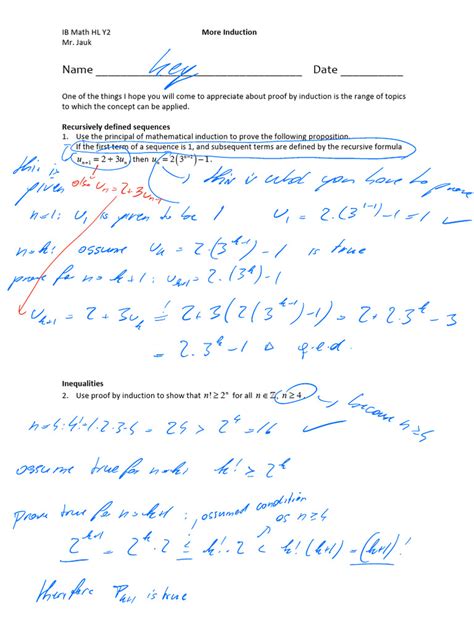 IB Math HL Y2 More Induction
Mr. Jauk
Name hey Date
One of the things I hope you will come to appreciate about proof by induction is the range of topics
to which the concept can be applied.
Recursively defined sequences
1. Use the principal of mathematical induction to prove the following proposition.
If the first term of a sequence is 1, and subsequent terms are defined by the recursive formula
uₙ₊₁ = 2 + 3uₙ then uₙ = 2(3ⁿ⁻¹) − 1.
this is given
also uₙ = 2 + 3uₙ₋₁
this is what you have to prove
n=1: u₁ is given to be 1 u₁ = 2·(3¹⁻¹) − 1 = 1 ✓
n=k: assume uₖ = 2·(3ᵏ⁻¹) − 1 is true
prove for n=k+1: uₖ₊₁ = 2·(3ᵏ) − 1
uₖ₊₁ = 2 + 3uₖ = 2 + 3(2(3ᵏ⁻¹) − 1) = 2 + 2·3ᵏ − 3
= 2·3ᵏ − 1 q.e.d.
Inequalities
2. Use proof by induction to show that n! ≥ 2ⁿ for all n ∈ ℤ, n ≥ 4.
because n≥4
n=4: 4! = 1·2·3·4 = 24 > 2⁴ = 16 ✓
assume true for n=k: k! ≥ 2ᵏ
prove true for n=k+1: assumed condition
as n≥4
2ᵏ⁺¹ = 2ᵏ·2 ≤ k!·2 < k!(k+1) = (k+1)!
therefore Pₖ₊₁ is true